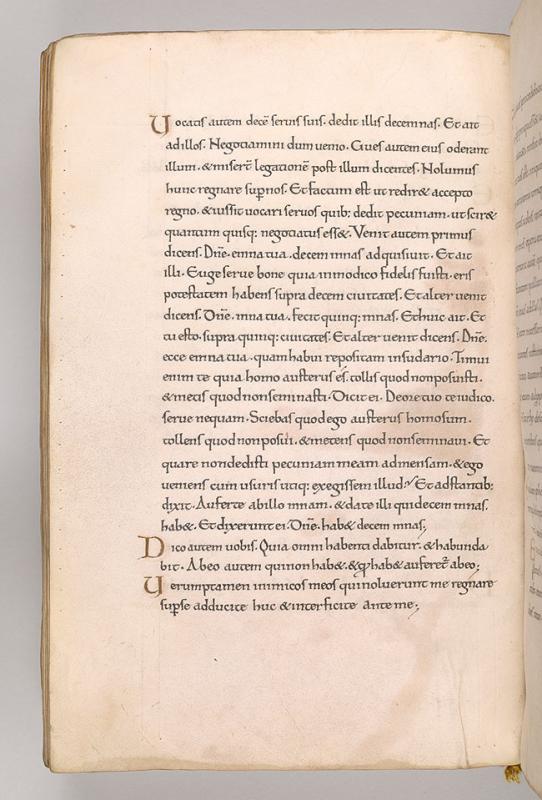 Uocatis autem decē seruis suis. dedit illis decem nas. Et ait
ad illos. Negotiamini dum uenio. Ciues autem eius oderant
illum. & miserꝉ legationē post illum dicentes. Nolumus
hunc regnare sup nos. Et factum est ut redir& accepto
regno. & iussit uocari seruos quib; dedit pecuniam. ut scir&
quantum quisq; negotiatus ess&. Venit autem primus
dicens. Dn̄e. emna tua. decem mnas adquisiuit. Et ait
illi. Euge serue bone quia inmodico fidelis fuisti. eris
potestatem habens supra decem ciuitates. Et alter uenit
dicens. Dn̄e. mna tua. fecit quinq; mnas. Et huic ait. Et
tu esto. supra quinq; ciuitates. Et alter uenit dicens. Dn̄e.
ecce emna tua. quam habui repositam insudario. Timui
enim te quia homo austerus és. tollis quod nonposuisti.
& metis quod nonseminasti. Dicit ei. Deore tuo te iudico.
serue nequam. Sciebas quod ego austerus homo sum.
tollens quod non posui. & metens quod nonseminaui. Et
quare nondedisti pecuniam meam admensam. & ego
ueniens cum usuris utiq; exegissem illud. Et adstantib;
dixit. Auferte abillo mnam. & date illi qui decem mnas
hab&. Et dixerunt ei. Dn̄e. hab& decem mnas;
Dico autem uobis. Quia omni habenti dabitur. & habunda
bit. Abeo autem qui non hab&. & qđ hab& auferet̄ abeo;
Uerumptamen inimicos meos qui noluerunt me regnare
sup se adducite huc & interficite ante me;